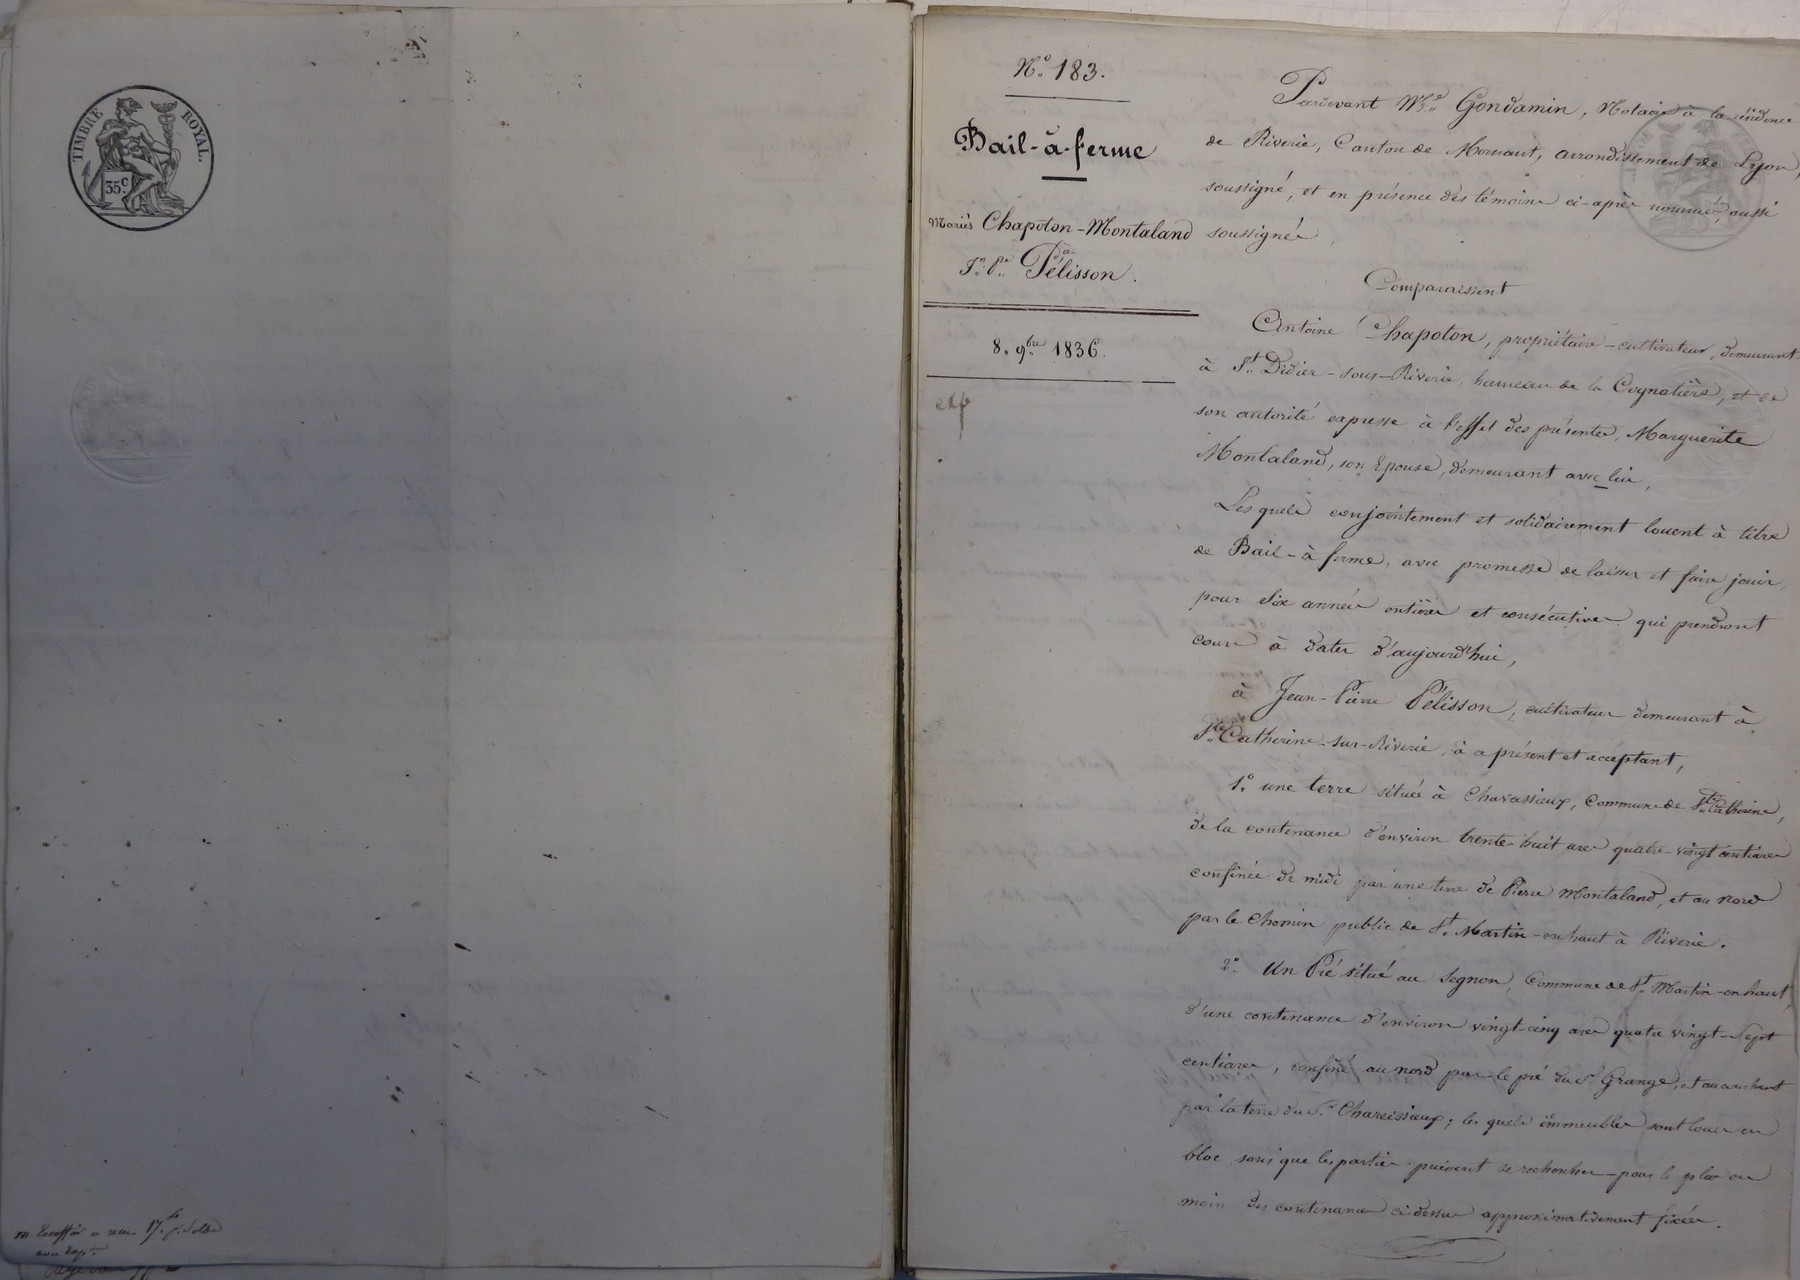 TIMBRE ROYAL.
35c
M Escoffier a reçu 17.f p. solde
avec exp.on
No. 183.
Bail-à-ferme
Mariés Chapoton-Montaland
à
Jn. Pre. Pélisson.
8. 9bre 1836.
exp
Pardevant Me. Gondamin, Notaire à la résidence
de Riverie, Canton de Mornant, arrondissement de Lyon,
soussigné, et en présence des témoins ci-après nommés, aussi
soussignés,
Comparaissent
Antoine Chapoton, propriétaire-cultivateur, demeurant
à St. Didier-sous-Riverie, hameau de la Cognatière, et de
son autorité expresse à l'effet des présentes, Marguerite
Montaland, son Epouse, demeurant avec lui,
Lesquels conjointement et solidairement louent à titre
de Bail-à ferme, avec promesse de laisser et faire jouir,
pour six années entières et consécutives qui prendront
cours à dater d'aujourd'hui,
à Jean-Pierre Pélisson, cultivateur demeurant à
Ste. Catherine-sur-Riverie, à ce présent et acceptant,
1o. une terre située à Chavassieux, Commune de Ste. Catherine,
de la contenance d'environ trente-huit ares quatre-vingt centiares
confinée de midi par une terre de Pierre Montaland, et au nord
par le chemin public de St. Martin-en haut à Riverie.
2o. Un Pré situé au Sognon, Commune de St. Martin-en haut,
d'une contenance d'environ vingt-cinq ares quatre vingt-sept
centiares, confiné au nord par le pré du Sr. Grange, et au couchant
par la terre du Sr. Chareissieux; les quels immeubles sont loués en
bloc sans que les parties puissent se rechercher pour le plus ou
moins des contenances ci-dessus approximativement fixées.